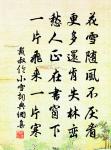 花雪隨風不厭看
更多還肯失林巒
愁人正在書窗下
一片飛來一片寒
戴叔倫小雪